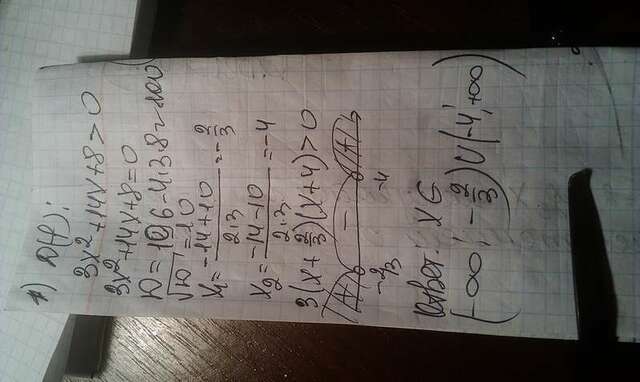 1) D(f):
3x²+14x+8>0
3x²+14x+8=0
D=196-4·3·8=100
√D=10
x₁=(-14+10)/(2·3)=-2/3
x₂=(-14-10)/(2·3)=-4
3(x+2/3)(x+4)>0
+ - +
-2/3 -4
Ответ: x∈
(-∞;-2/3)∪(-4;+∞)